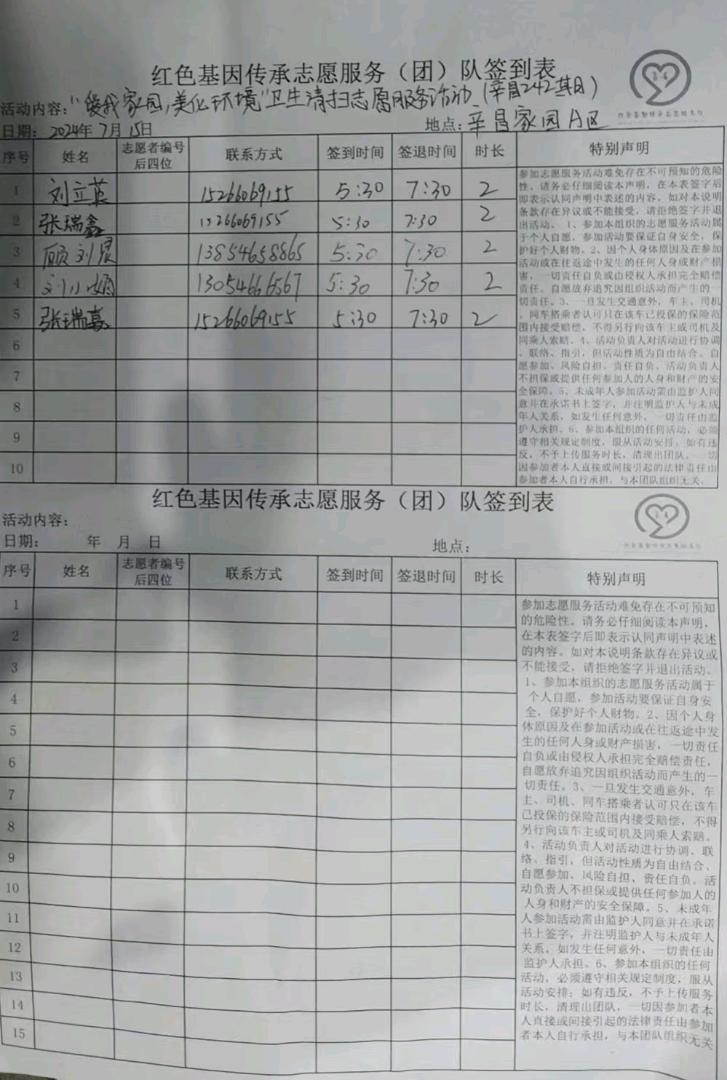 红色基因传承志愿服务（团）队签到表
活动内容："爱我家园,美化环境"卫生清扫志愿服务活动(辛昌242期)
日期：2024年7月15日 地点：辛昌家园A区
序号 姓名 志愿者编号后四位 联系方式 签到时间 签退时间 时长 特别声明
1 刘立英 15266069155 5:30 7:30 2
2 张瑞鑫 15266069155 5:30 7:30 2
3 顾刘 13854658865 5:30 7:30 2
4 刘小娟 13054666567 5:30 7:30 2
5 张瑞嘉 15266069155 5:30 7:30 2
6
7
8
9
10
参加志愿服务活动难免存在不可预知的危险
性，请务必仔细阅读本声明，在本表签字后
即表示认同声明中表述的内容。如对本说明
条款存在异议或不能接受，请拒绝签字并退
出活动。1、参加本组织的志愿服务活动属
于个人自愿，参加活动要保证自身安全，保
护好个人财物。2、因个人身体原因及在参加
活动或在往返途中发生的任何人身或财产损
害，一切责任自负或由侵权人承担完全赔偿
责任，自愿放弃追究因组织活动而产生的一
切责任。3、一旦发生交通意外，车主、司机
、同车搭乘者认可只在该车已投保的保险范
围内接受赔偿，不得另行向该车主或司机及
同乘人索赔。4、活动负责人对活动进行协调
、联络、指引，但活动性质为自由结合、自
愿参加、风险自担、责任自负。活动负责人
不担保或提供任何参加人的人身和财产的安
全保障。5、未成年人参加活动需由监护人同
意并在承诺书上签字，并注明监护人与未成
年人关系，如发生任何意外，一切责任由监
护人承担。6、参加本组织的任何活动，必须
遵守相关规定制度，服从活动安排；如有违
反，不予上传服务时长，清理出团队，一切
因参加者本人直接或间接引起的法律责任由
参加者本人自行承担，与本团队组织无关。
红色基因传承志愿服务（团）队签到表
活动内容：
日期： 年 月 日 地点：
序号 姓名 志愿者编号后四位 联系方式 签到时间 签退时间 时长 特别声明
1
2
3
4
5
6
7
8
9
10
11
12
13
14
15
参加志愿服务活动难免存在不可预知
的危险性，请务必仔细阅读本声明，
在本表签字后即表示认同声明中表述
的内容。如对本说明条款存在异议或
不能接受，请拒绝签字并退出活动。
1、参加本组织的志愿服务活动属于
个人自愿，参加活动要保证自身安
全，保护好个人财物。2、因个人身
体原因及在参加活动或在往返途中发
生的任何人身或财产损害，一切责任
自负或由侵权人承担完全赔偿责任，
自愿放弃追究因组织活动而产生的一
切责任。3、一旦发生交通意外，车
主、司机、同车搭乘者认可只在该车
已投保的保险范围内接受赔偿，不得
另行向该车主或司机及同乘人索赔。
4、活动负责人对活动进行协调、联
络、指引，但活动性质为自由结合、
自愿参加、风险自担、责任自负。活
动负责人不担保或提供任何参加人的
人身和财产的安全保障。5、未成年
人参加活动需由监护人同意并在承诺
书上签字，并注明监护人与未成年人
关系，如发生任何意外，一切责任由
监护人承担。6、参加本组织的任何
活动，必须遵守相关规定制度，服从
活动安排；如有违反，不予上传服务
时长，清理出团队，一切因参加者本
人直接或间接引起的法律责任由参加
者本人自行承担，与本团队组织无关